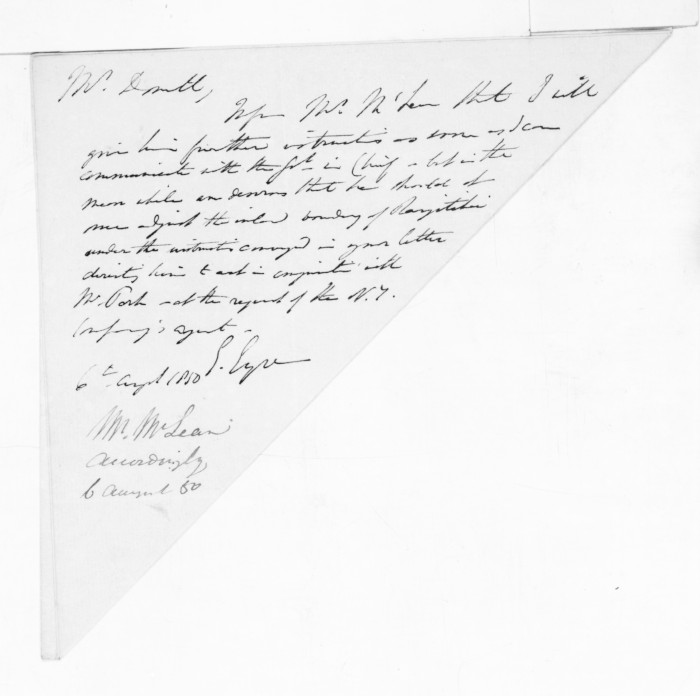 Mr. Domett,
Inform Mr. McLean that I will
give him further instructions as soon as I can
communicate with the Govr. in Chief - but in the
mean while am desirous that he should at
once adjust the inland boundary of Rangitikei
under the instructions conveyed in your letter
directing him to act in conjunction with
Mr. Park - at the request of the N.Z.
Company's agent -
E. Eyre
6th. augt 1850
Mr. McLean
accordingly
6 August 50